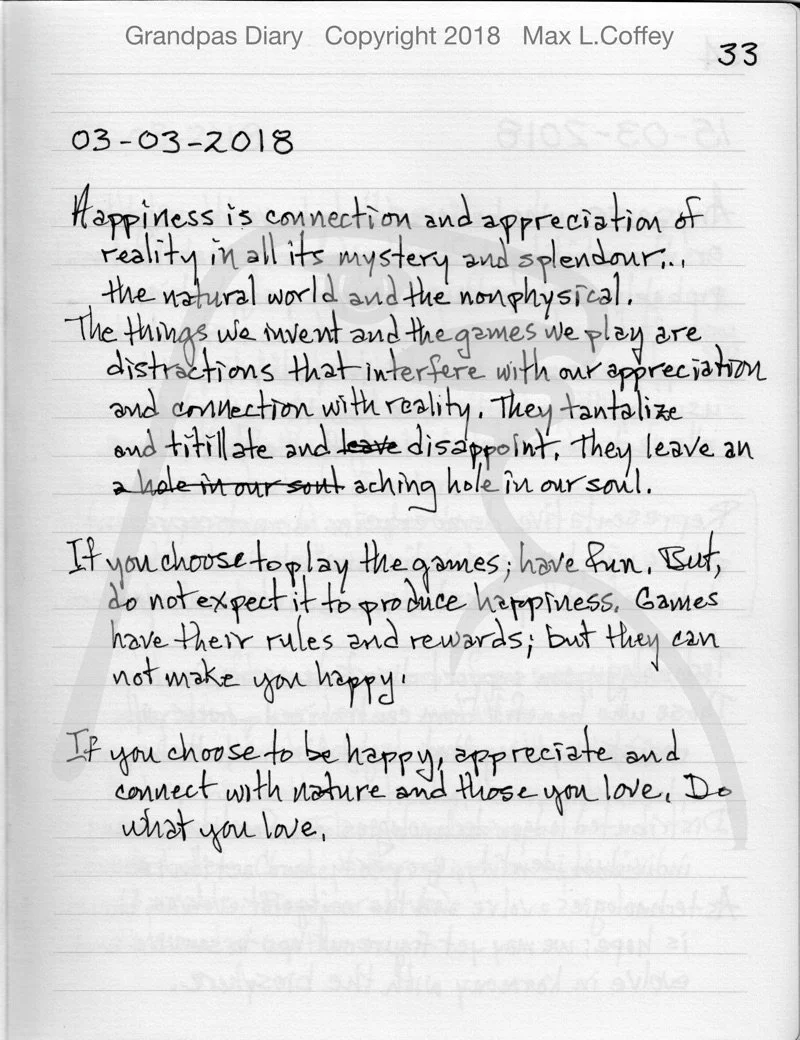 Grandpas Diary Copyright 2018 Max L.Coffey
33
03-03-2018
Happiness is connection and appreciation of
reality in all its mystery and splendour...
the natural world and the nonphysical.
The things we invent and the games we play are
distractions that interfere with our appreciation
and connection with reality. They tantalize
and titillate and leave disappoint. They leave an
a hole in our soul aching hole in our soul.
If you choose to play the games; have fun. But,
do not expect it to produce happiness. Games
have their rules and rewards; but they can
not make you happy.
If you choose to be happy, appreciate and
connect with nature and those you love. Do
what you love.